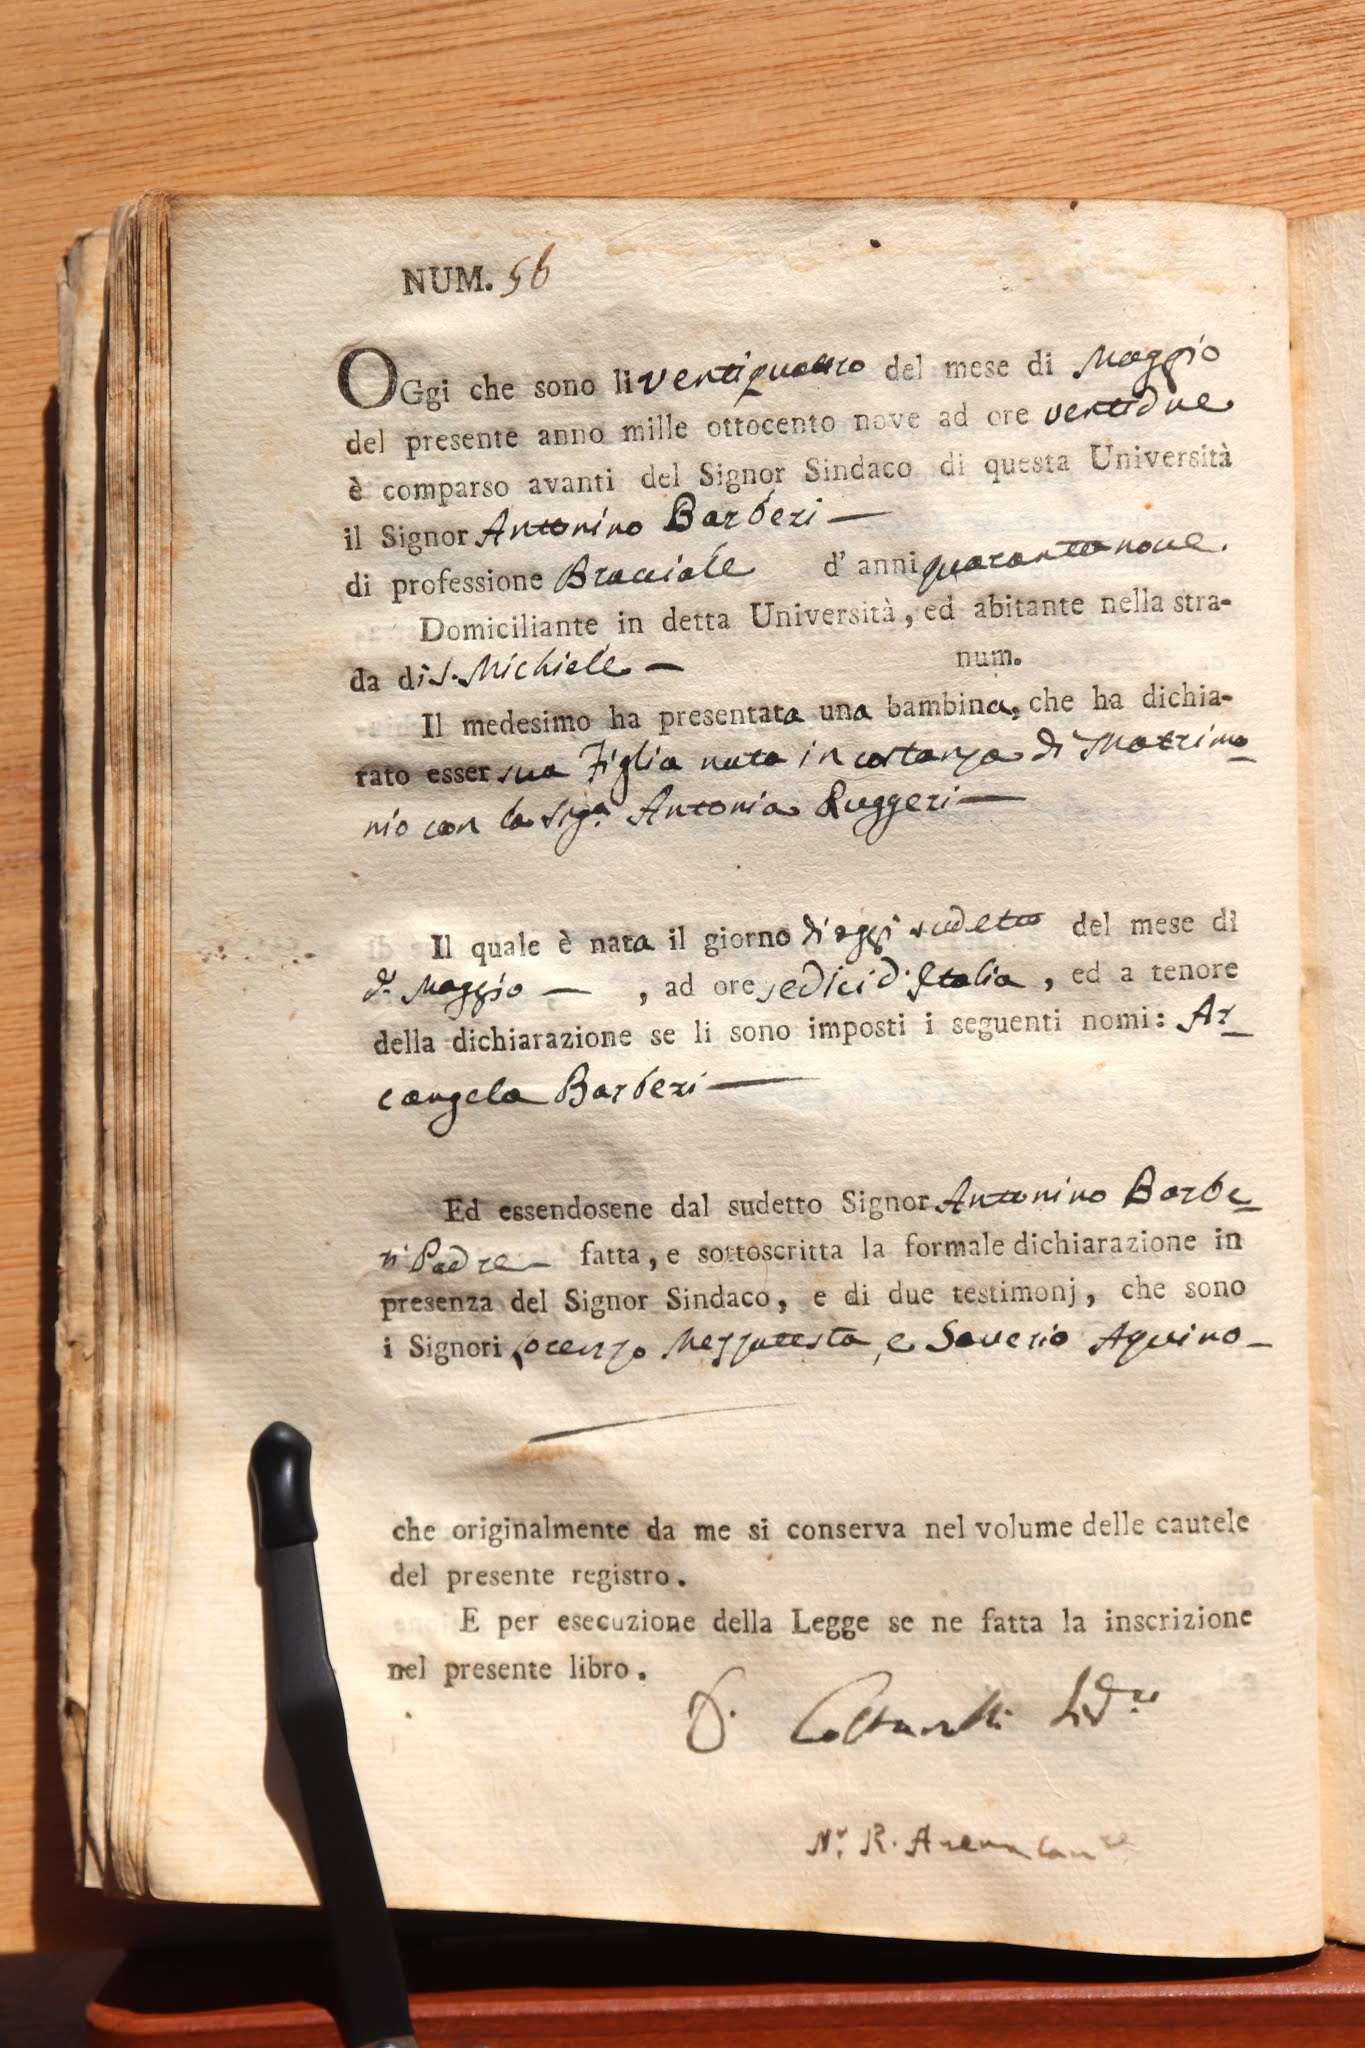 NUM. 56
OGgi che sono li ventiquattro del mese di Maggio
del presente anno mille ottocento nove ad ore ventidue
è comparso avanti del Signor Sindaco di questa Università
il Signor Antonino Barberi —
di professione Bracciale d' anni quarantanove.
Domiciliante in detta Università, ed abitante nella stra-
da di S. Michiele — num.
Il medesimo ha presentata una bambina, che ha dichia-
rato esser sua Figlia nata in costanza di Matrimo
nio con la Sig.a Antonia Ruggeri —
Il quale è nata il giorno di oggi sudetto del mese di
di Maggio — , ad ore sedici d'Italia , ed a tenore
della dichiarazione se li sono imposti i seguenti nomi: Ar
cangela Barberi —
Ed essendosene dal sudetto Signor Antonino Barbe
ri Padre — fatta, e sottoscritta la formale dichiarazione in
presenza del Signor Sindaco, e di due testimonj, che sono
i Signori Lorenzo Mezzatesta, e Saverio Aquino —
che originalmente da me si conserva nel volume delle cautele
del presente registro.
E per esecuzione della Legge se ne fatta la inscrizione
nel presente libro.
N.r R. Arena